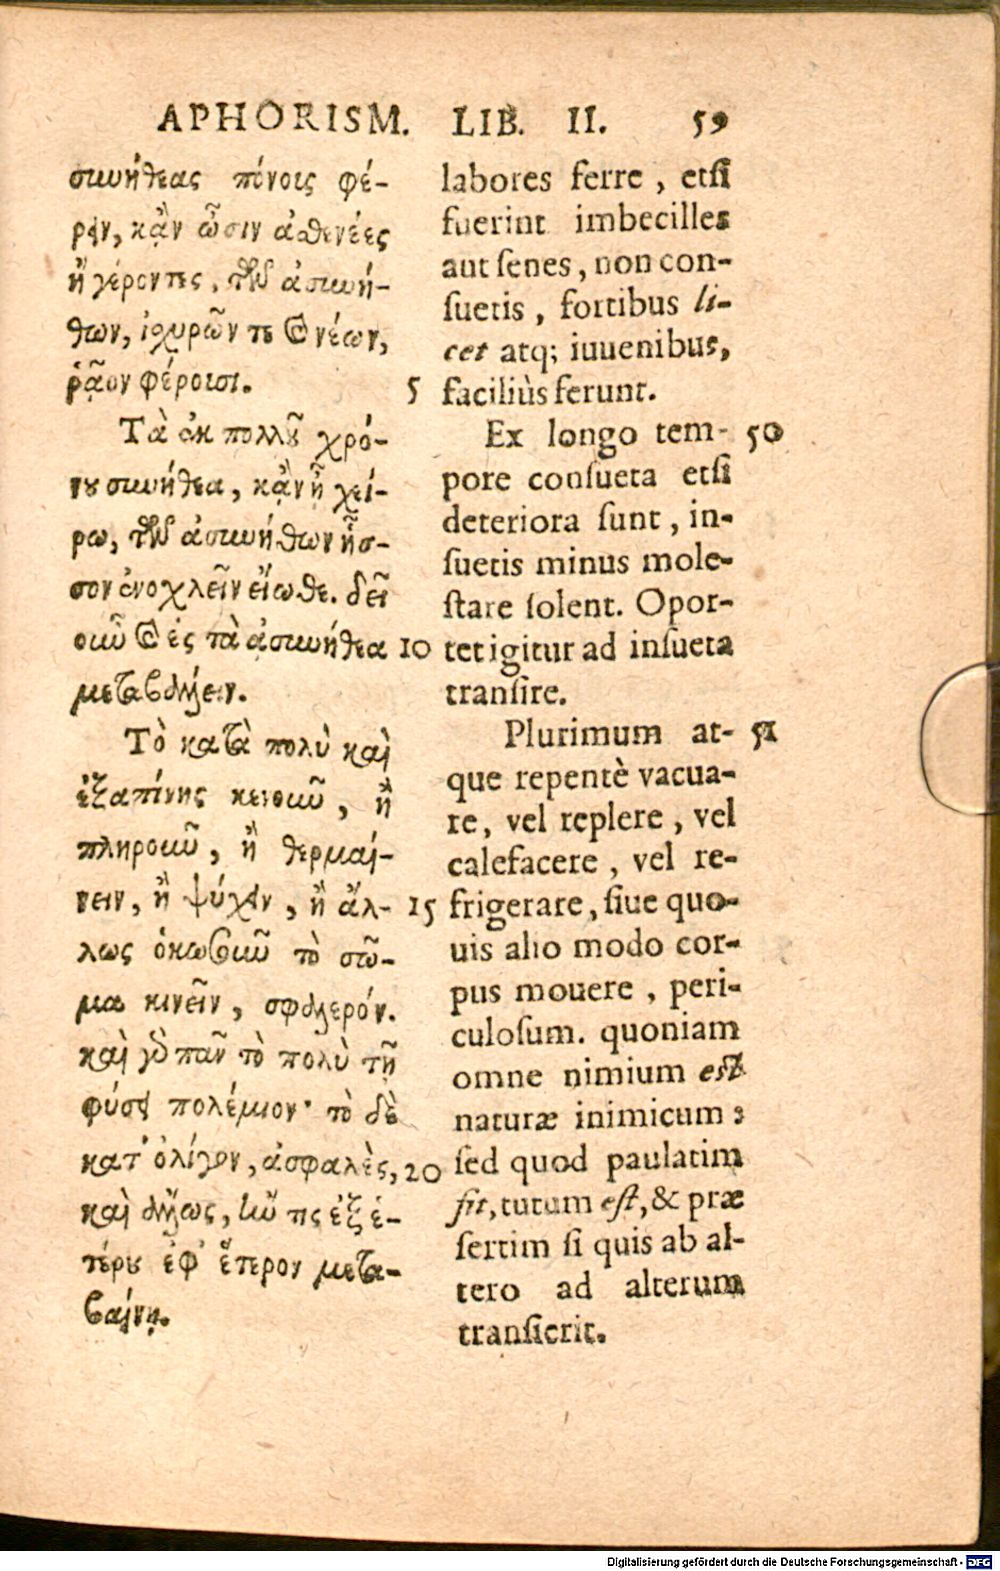 APHORISM. LIB. II. 59
συνήθεας πόνοις φέ-
ρειν, κᾂν ὦσιν ἀσθενέες
ἢ γέροντες, τῶν ἀσυνή-
θων, ἰσχυρῶν τε καὶ νέων,
ῥᾷον φέρουσι.
Τὰ ἐκ πολλοῦ χρό-
νου συνήθεα, κᾂν ᾖ χεί-
ρω, τῶν ἀσυνήθων ἧσ-
σον ἐνοχλεῖν εἴωθε. δεῖ
οὖν καὶ ἐς τὰ ἀσυνήθεα
μεταβάλλειν.
Τὸ κατὰ πολὺ καὶ
ἐξαπίνης κενοῦν, ἢ
πληροῦν, ἢ θερμαί-
νειν, ἢ ψύχειν, ἢ ἄλ-
λως ὁκωσοῦν τὸ σῶ-
μα κινεῖν, σφαλερόν.
καὶ γὰρ πᾶν τὸ πολὺ τῇ
φύσει πολέμιον· τὸ δὲ
κατ' ὀλίγον, ἀσφαλὲς,
καὶ ἄλλως, ἢν τις ἐξ ἑ-
τέρου ἐφ' ἕτερον μετα-
βαίνῃ.
5
10
15
20
labores ferre, etſi
fuerint imbecilles
aut ſenes, non con-
ſuetis, fortibus li-
cet atq; iuuenibus,
faciliùs ferunt.
Ex longo tem- 50
pore conſueta etſi
deteriora ſunt, in-
ſuetis minus mole-
ſtare ſolent. Opor-
tet igitur ad inſueta
tranſire.
Plurimum at- 51
que repentè vacua-
re, vel replere, vel
calefacere, vel re-
frigerare, ſiue quo-
uis alio modo cor-
pus mouere, peri-
culoſum. quoniam
omne nimium eſt
naturæ inimicum:
ſed quod paulatim
fit, tutum eſt, & præ
ſertim ſi quis ab al-
tero ad alterum
tranſierit.
Digitalisierung gefördert durch die Deutsche Forschungsgemeinschaft - DFG